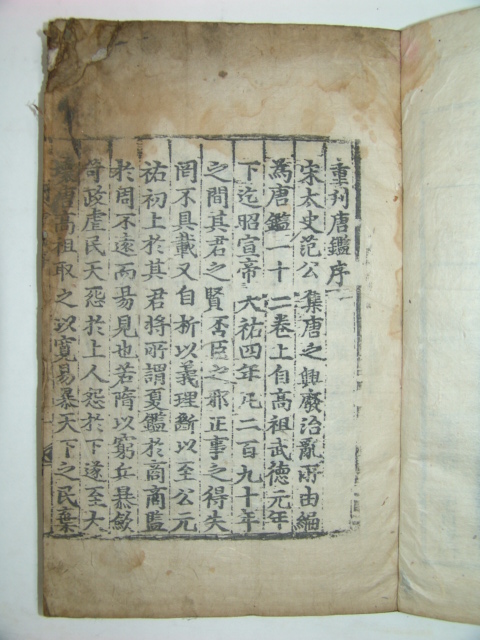 重刊唐鑑序
宋太史范公集唐之興廢治亂所由編
為唐鑑一十二卷上自高祖武德元年
下迄昭宣帝天祐四年凡二百九十年
之間其君之賢否臣之邪正事之得失
罔不具載又自折以義理斷以至公元
祐初上於其君將所謂夏鑑於商商監
於周不遠而易見也若隋以窮兵暴斂
苛政虐民天怨於上人怨於下遂至大
唐高祖取之以寬易暴天下之民棄